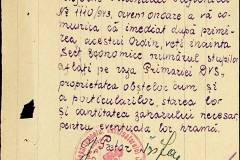 № 1110/943, avem onoare a vă
comunica că imediat după primi
rea acestui Ordin, veți înainta
Șert Economic numărul stupilor
aflați pe raza Primăriei DVS,
proprietatea obștelor cum și
a particularilor, starea lor
și cantitatea zaharului necesar
pentru eventuala lor hrană.
Pretor